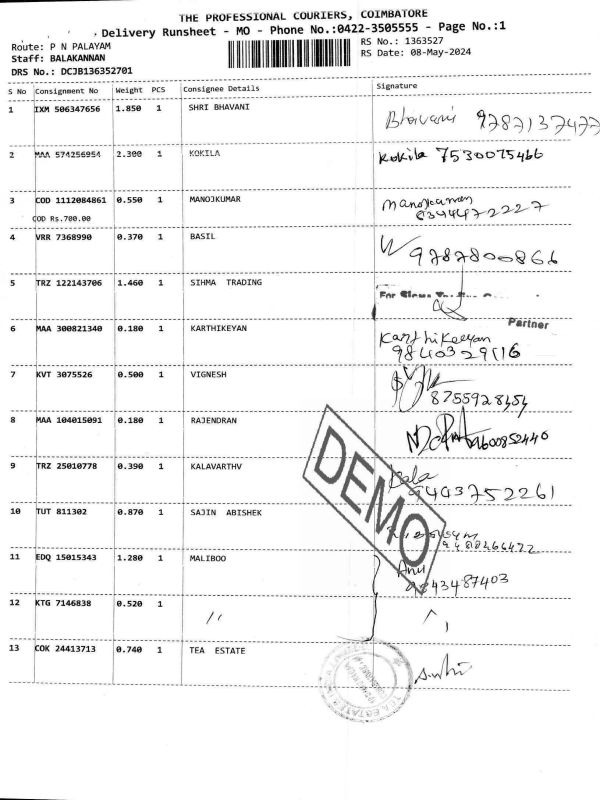 THE PROFESSIONAL COURIERS, COIMBATORE
Delivery Runsheet - MO - Phone No.:0422-3505555 - Page No.:1
Route: P N PALAYAM
RS No.: 1363527
Staff: BALAKANNAN
RS Date: 08-May-2024
DRS No.: DCJB136352701
S No Consignment No Weight PCS Consignee Details Signature
1 IXM 506347656 1.850 1 SHRI BHAVANI Bhavani 9787137477
2 MAA 574256954 2.300 1 KOKILA Kokila 7530075466
3 COD 1112084861 0.550 1 MANOJKUMAR Manojkumar
COD Rs.700.00 6344472227
4 VRR 7368990 0.370 1 BASIL 9787800866
5 TRZ 122143706 1.460 1 SIHMA TRADING
Partner
6 MAA 300821340 0.180 1 KARTHIKEYAN Karthikeeyan
9840329116
7 KVT 3075526 0.500 1 VIGNESH
8755928454
8 MAA 104015091 0.180 1 RAJENDRAN 9600852440
9 TRZ 25010778 0.390 1 KALAVARTHV Kala
9403752261
10 TUT 811302 0.870 1 SAJIN ABISHEK
9488266472
11 EDQ 15015343 1.280 1 MALIBOO Anu
9843487403
12 KTG 7146838 0.520 1 "
13 COK 24413713 0.740 1 TEA ESTATE
DEMO